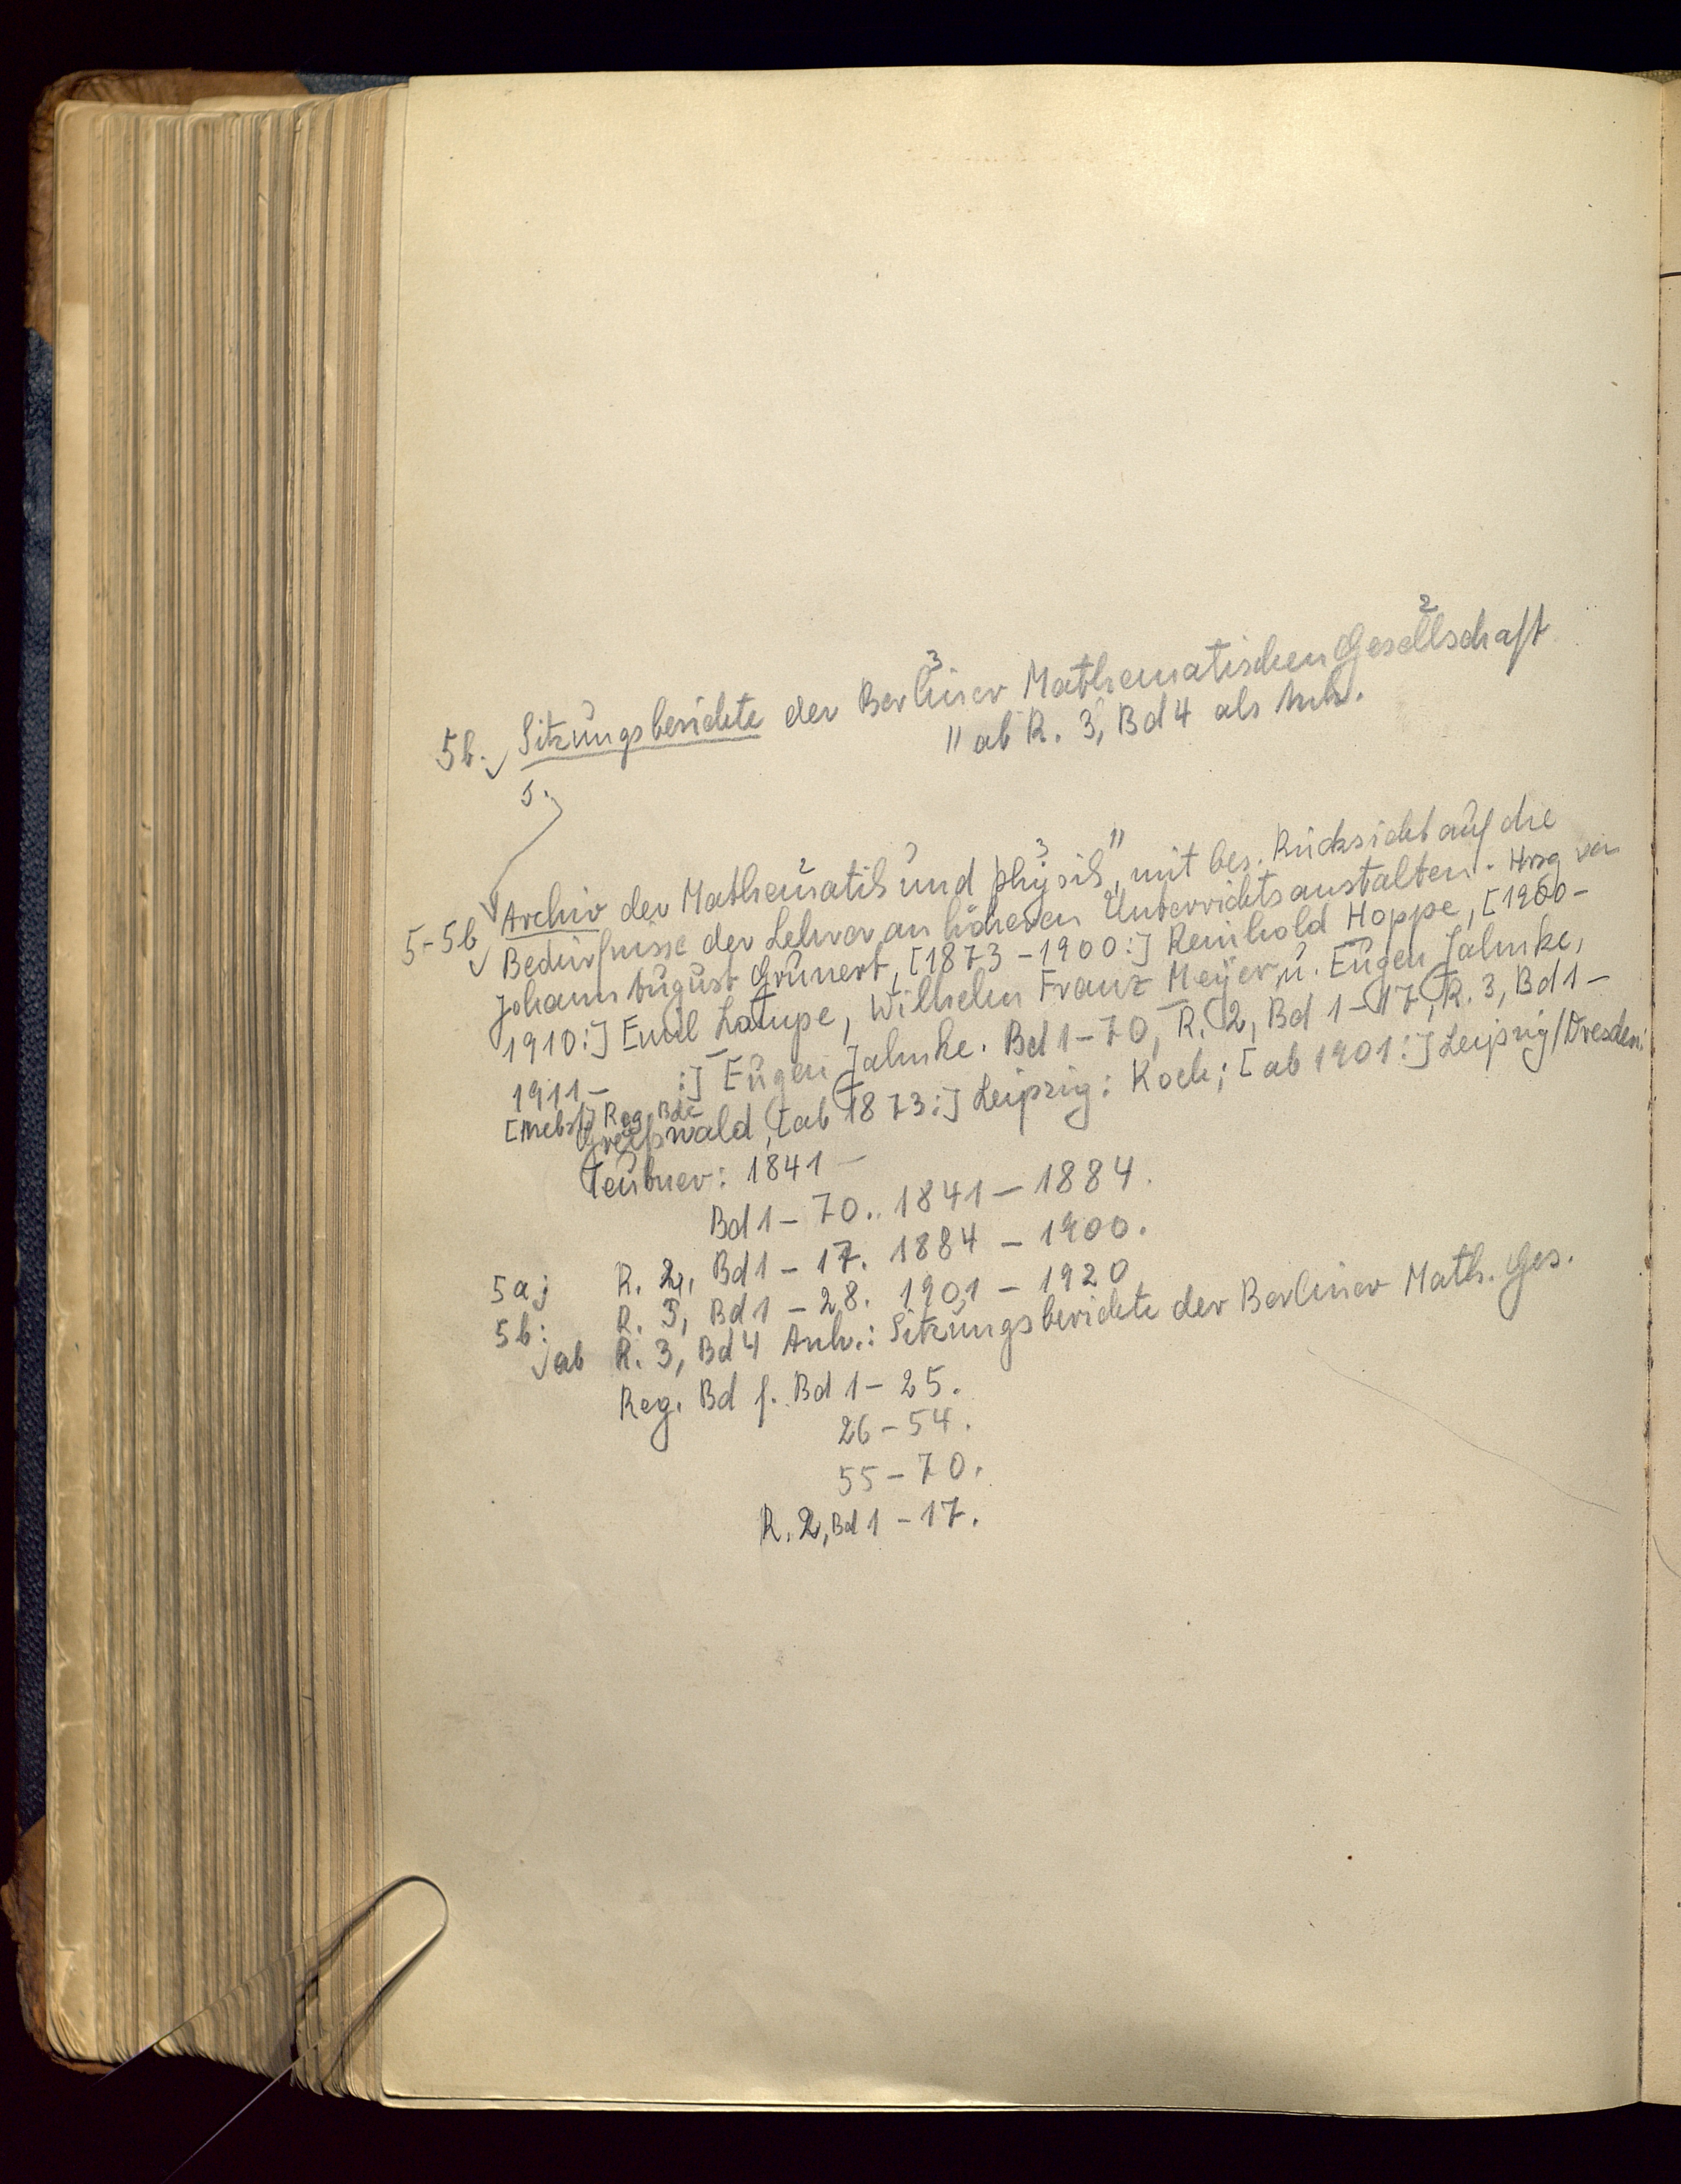 2
3
5b. Sitzungsberichte der Berliner Mathematischen Gesellschaft
" ab R. 3, Bd 4 als Anh.
5.
2 3 "
5-5b Archiv der Mathematik und Physik, mit bes. Rücksicht auf die
Bedürfnisse der Lehrer an höheren Unterrichtsanstalten. Hrsg von
Johann August Grunert, [1873-1900:] Reinhold Hoppe, [1900-
1910:] Emil Lampe, Wilhelm Franz Meyer, u. Eugen Jahnke,
1911- :] Eugen Jahnke. Bd 1-70, R. 2, Bd 1-17, R. 3, Bd 1-
[Nebst] Reg. Bde
Greifswald, [ab 1873:] Leipzig: Koch; [ab 1901:] Leipzig/Dresden:
Teubner: 1841-
Bd 1-70. 1841-1884.
5a; R. 2, Bd 1-17. 1884-1900.
5b: R. 3, Bd 1-28. 1901-1920
ab R. 3, Bd 4 Anh.: Sitzungsberichte der Berliner Math. Ges.
Reg. Bd f. Bd 1-25.
26-54.
55-70.
R. 2, Bd 1-17.